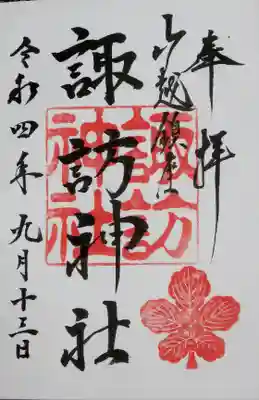 奉拝
山越鎮座
諏訪神社
諏訪神社
令和四年九月十三日